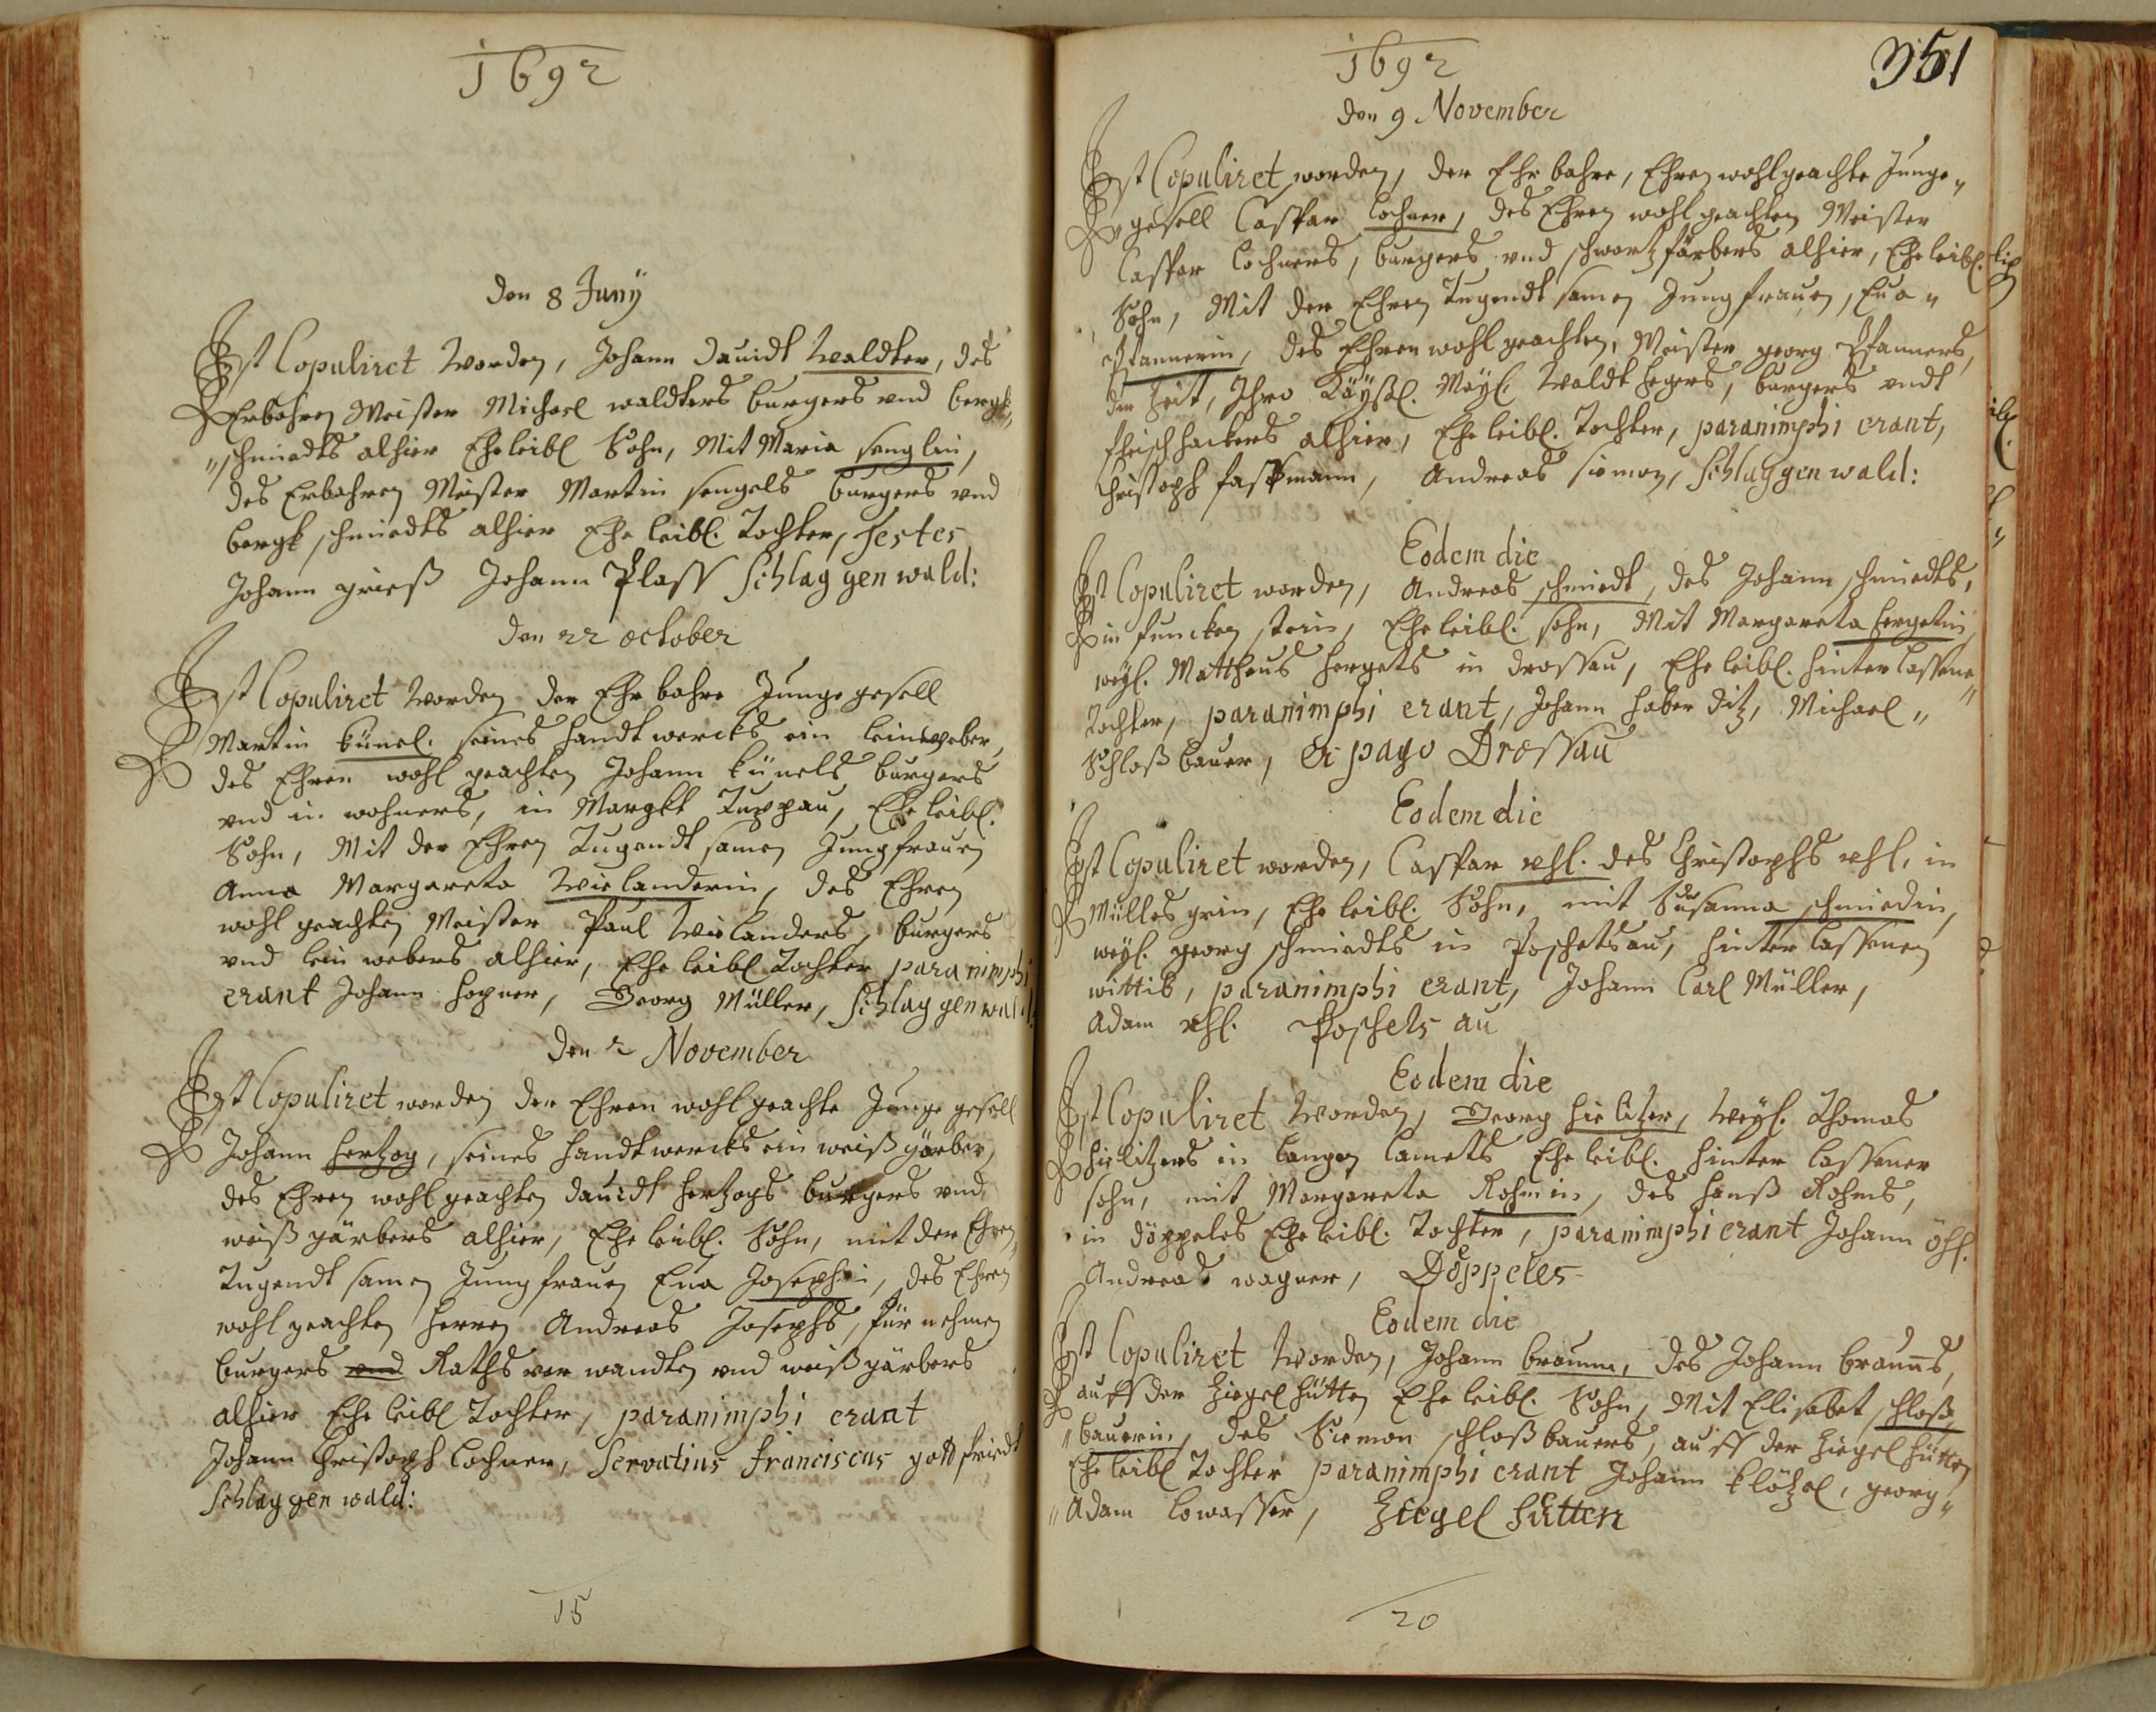 1692
den 8 Juny
Ist Copuliret worden, Johann Dauidt Waldter, des
Erbahren Meister Michael waldters burgers vnd bergk
schmiedts alhier Eheleibl Sohn, Mit Maria senglin,
des Erbahren Meister Martin sengels burgers vnd
bergk schmiedts alhier Ehe leibl. Tochter, testes
Johann grieß Johann Plass Schlaggenwald:
den 22 october
Ist Copuliret worden der Ehrbahre Junge gesell
Martin künel. seines handtwercks ein leinweber,
des Ehren wohl geachten Johann künels burgers
vnd in wohners, in Margkt Tuppau, Ehe leibl.
Sohn, Mit der Ehren Tugendt samen Jungfrauen
Anna Margareta Wielanderin, des Ehren
wohl geachten Meister Paul Wielanders, burgers
vnd lein webers alhier, Ehe leibl Tochter paranimphi
erant Johann hoyner, Georg Müller, Schlaggenwald:
den 2 November
Ist Copuliret worden der Ehren wohl geachte Junge gesell
Johann hertzog, seines handtwercks ein weiß gärber,
des Ehren wohl geachten Dauidt hertzogs burgers vnd
weiß gärbers alhier, Ehe leibl. Sohn, mit der Ehren
Tugendt samen Jungfrauen Eua Josephin, des Ehren
wohl geachten herren Andreas Josephs, für nehmen
burgers vnd Raths ver wandten vnd weiß gärbers
alhier Ehe leibl Tochter, paranimphi erant
Johann Christoph Lochner, Servatius Franciscus gottfriedt
Schlaggenwald:
15
1692
351
den 9 November
Ist Copuliret worden, der Ehrbahre, Ehren wohlgeachte Junge
gesell Caspar Lochner, des Ehren wohl geachten Meister
Caspar Lochners, burgers vnd schwartzfärbers alhier, Eheleibl.
Sohn, Mit der Ehren Tugendt samen Jungfrauen, Eua
Pfannerin, des Ehren wohl geachten, Meister georg Pfanners,
der Zeit, Ihro Käyßl. Mayl. Waldt hegers, burgers undt
fleischhackers alhier, Ehe leibl. Tochter, paranimphi erant,
Christoph fasmann, Andreas siemon, Schlaggenwald:
Eodem die
Ist Copuliret worden, Andreas schmidt, des Johann schmiedts,
in funcken stein, Ehe leibl. sohn, Mit Margareta hergetin
weyl. Mattheus hergets in drossau, Ehe leibl. hinter lassene
Tochter, paranimphi erant, Johann haber ditz, Michael
Schloßbauer, ex pago Drossau
Eodem die
Ist Copuliret worden, Caspar ehl. des Christophs ehl, in
Mülles grin, Ehe leibl. Sohn, mit Susanna schmiedin,
weyl. georg schmiedts in Poschetsau, hinter lassenen
wittib, paranimphi erant, Johann Carl Müller,
Adam ehl. Poschets au
Eodem die
Ist Copuliret worden, Georg hielitzer, weyl. Thomas
hielitzers in langen lamets Ehe leibl. hinter lassener
sohn, mit Margareta Rohmin, des hanß Rohms,
in döppeles Ehe leibl. Tochter, paranimphi erant Johann öhl.
Andreas wagner, Döppeles
Eodem die
Ist Copuliret worden, Johann braunn, des Johann brauns,
auff der Ziegel hütten Ehe leibl. Sohn, Mit Elisabet schloß
bauerin, des Siemon schloßbauers, auff der Ziegel hütten
Ehe leibl Tochter paranimphi erant Johann klötzel, georg
Adam lowasser, Ziegel hütten
20